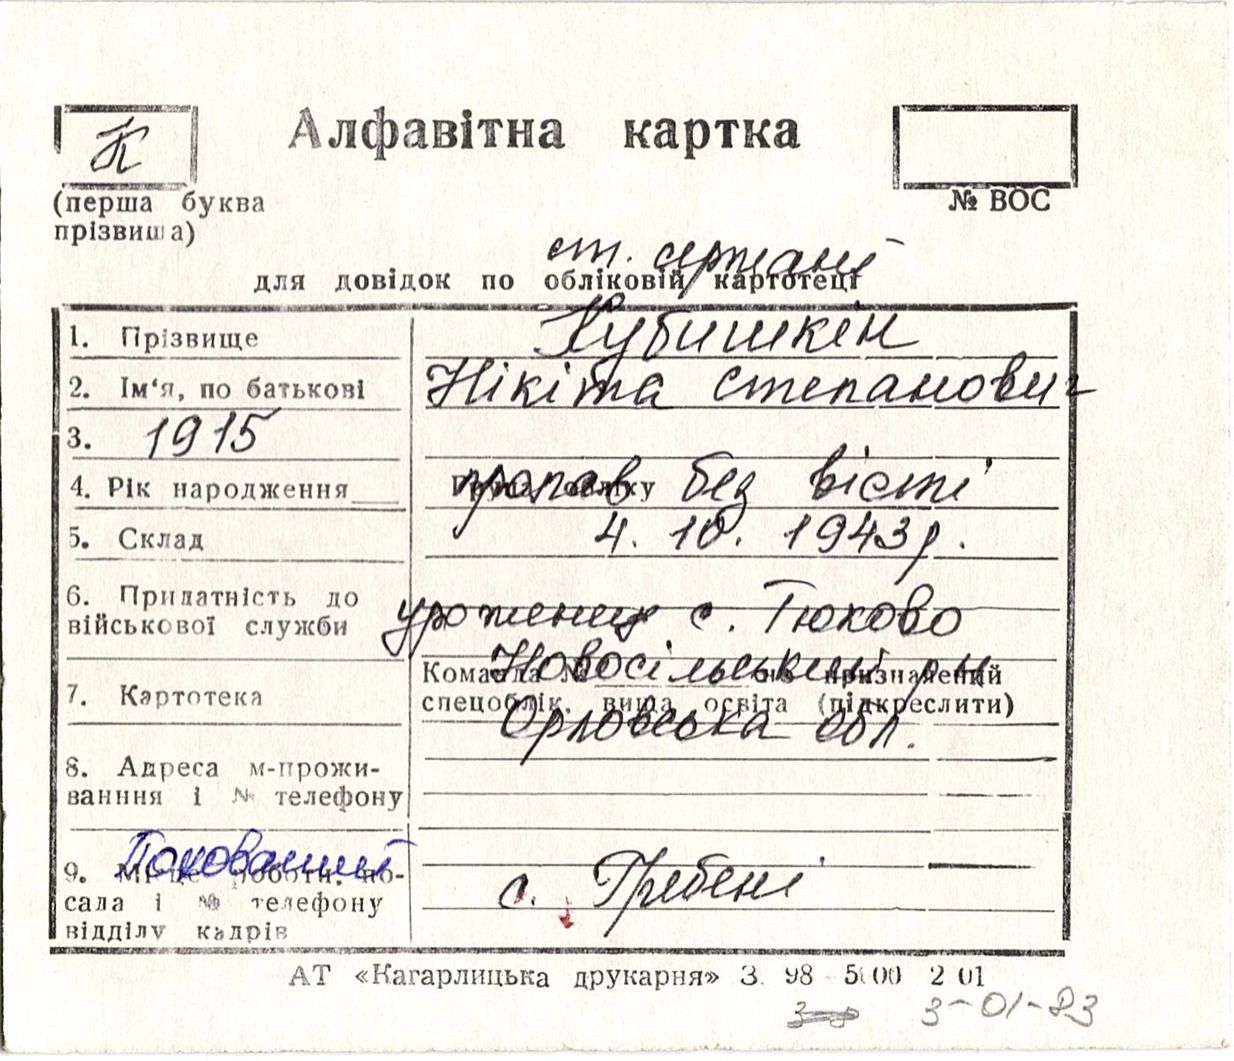 К
Алфавітна картка
(перша буква
прізвища)
№ ВОС
ст. сержант
для довідок по обліковій картотеці
1. Прізвище
Кубишкін
2. Ім'я, по батькові
Нікіта Степанович
3. 1915
4. Рік народження
пропав без вісті
5. Склад
4. 10. 1943 р.
6. Придатність до
військової служби
уроженец с. Тюково
Новосільський р-н
Команда № не призначений
7. Картотека
спецоблік, вища освіта (підкреслити)
Орловська обл.
8. Адреса м-прожи-
ванння і № телефону
Похований
9. Місце роботи, по-
сада і № телефону
відділу кадрів
с. Гребені
АТ «Кагарлицька друкарня» З. 98 5000 2 01
3-01-83